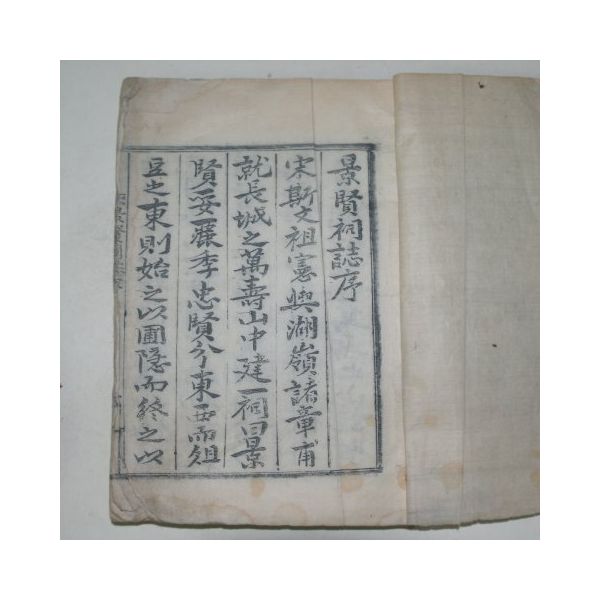 景賢祠誌序
宋斯文祖憲與湖嶺諸章甫
就長城之萬壽山中建一祠曰景
賢妥麗季忠賢分東西而俎
豆之東則始之以圃隱而終之以